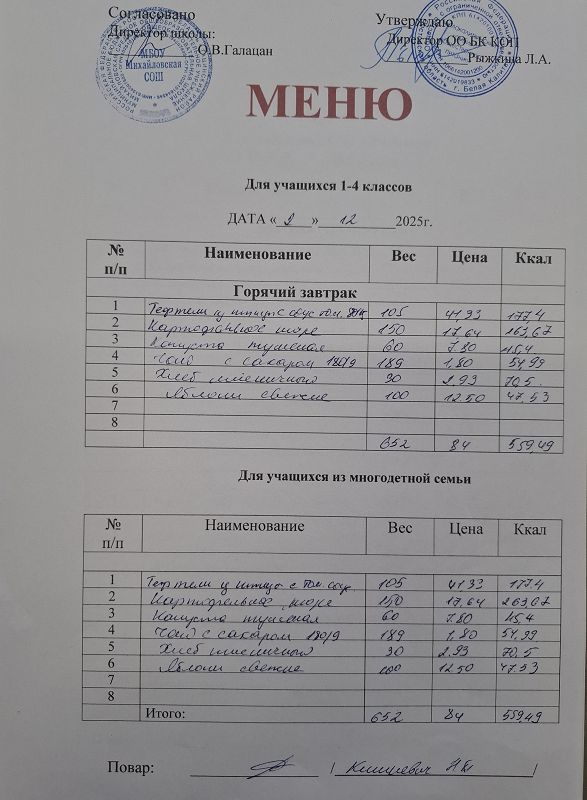 Согласовано Утверждаю
Директор школы: Директор ОО БК КОП
О.В.Галацан Рыжкина Л.А.
МБОУ
Михайловская
СОШ
МЕНЮ
Для учащихся 1-4 классов
ДАТА «2» 12 2025г.
№ п/п Наименование Вес Цена Ккал
Горячий завтрак
1 Тефтели из птицы с соус том. 105 41,93 177,4
2 Картофельное пюре 150 17,64 163,67
3 Капуста тушеная 60 7,80 45,4
4 Чай с сахаром 180/9 189 1,80 54,99
5 Хлеб пшеничный 30 2,93 70,5
6 Яблоки свежие 100 12,50 47,53
7
8
652 84 559,49
Для учащихся из многодетной семьи
№ п/п Наименование Вес Цена Ккал
1 Тефтели из птицы с том. соус. 105 41,33 177,4
2 Картофельное пюре 150 17,64 263,67
3 Капуста тушеная 60 7,80 45,4
4 Чай с сахаром 180/9 189 1,80 54,99
5 Хлеб пшеничный 30 2,93 70,5
6 Яблоки свежие 100 12,50 47,53
7
8
Итого: 652 84 559,49
Повар: